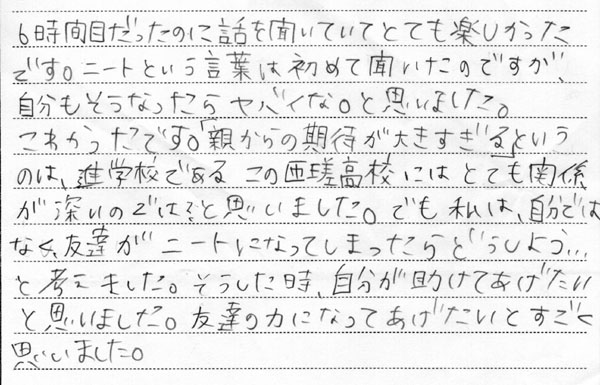 6時間目だったのに話を聞いていてとても楽しかった
です。ニートという言葉は初めて聞いたのですが、
自分もそうなったらヤバイな。と思いました。
こわかったです。「親からの期待が大きすぎる」という
のは、進学校である この匝瑳高校にはとても関係
が深いのでは?と思いました。でも私は、自分では
なく、友達がニートになってしまったらどうしよう…
と考えました。そうした時、自分が助けてあげたい
と思いました。友達の力になってあげたいとすごく
思いました。